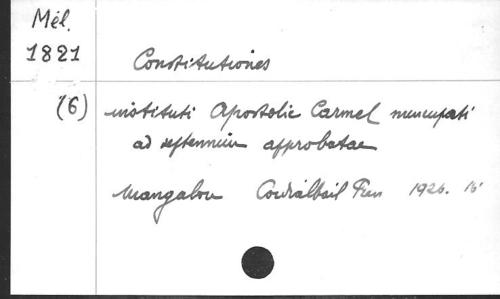 Mél.
1821
Constitutiones
(6) instituti Apostolic Carmel nuncupati
ad septennium approbatae
Mangalou Codialbail Press 1926. 16°